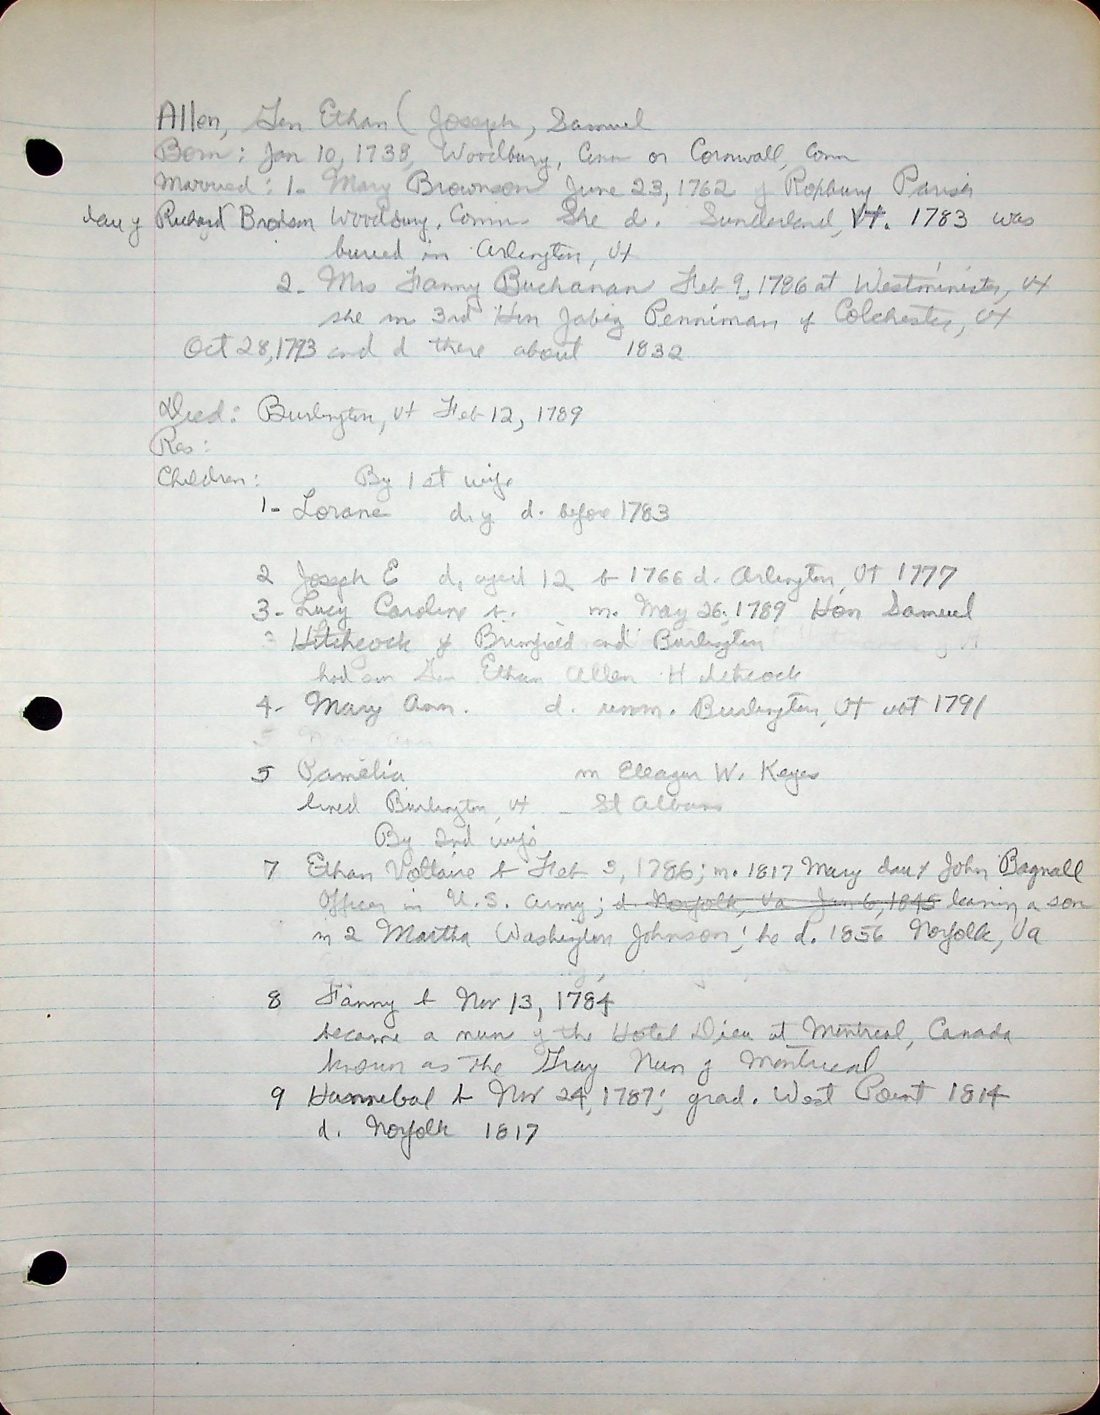 Allen, Gen Ethan (Joseph, Samuel
Born: Jan 10, 1738, Woodbury, Conn or Cornwall, Conn
Married: 1- Mary Brownson June 23, 1762 of Roxbury Parish
dau of Richard Bronson Woodbury, Conn. She d. Sunderland, Vt. 1783 was
buried in Arlington, Vt
2- Mrs Fanny Buchanan Feb 9, 1786 at Westminister, Vt
she m 3rd Hon Jabez Penniman of Colchester, Vt
Oct 28, 1793 and d there about 1832
Died: Burlington, Vt Feb 12, 1789
Res:
Children: By 1st wife
1- Lorane d. y d. before 1783
2 Joseph E d. aged 12 b 1766 d. Arlington, Vt 1777
3- Lucy Caroline b. m. May 26, 1789 Hon Samuel
3 Hitchcock of Brimfield and Burlington
had son Gen Ethan Allen Hitchcock
4- Mary Ann. d. unm. Burlington, Vt 1791
5 Mary Ann
5 Pamelia m Eleazur W. Keyes
lived Burlington, Vt - St Albans
By 2nd wife
7 Ethan Voltaire b Feb 3, 1786; m. 1817 Mary dau of John Bagnall
Officer in U.S. Army; d. Norfolk, Va Jan 6, 1845 leaving a son
m 2 Martha Washington Johnson; he d. 1856 Norfolk, Va
8 Fanny b Nov 13, 1784
became a nun of the Hotel Dieu at Montreal, Canada
known as The Gray Nun of Montreal
9 Hannibal b Nov 24, 1787; grad. West Point 1814
d. Norfolk 1817